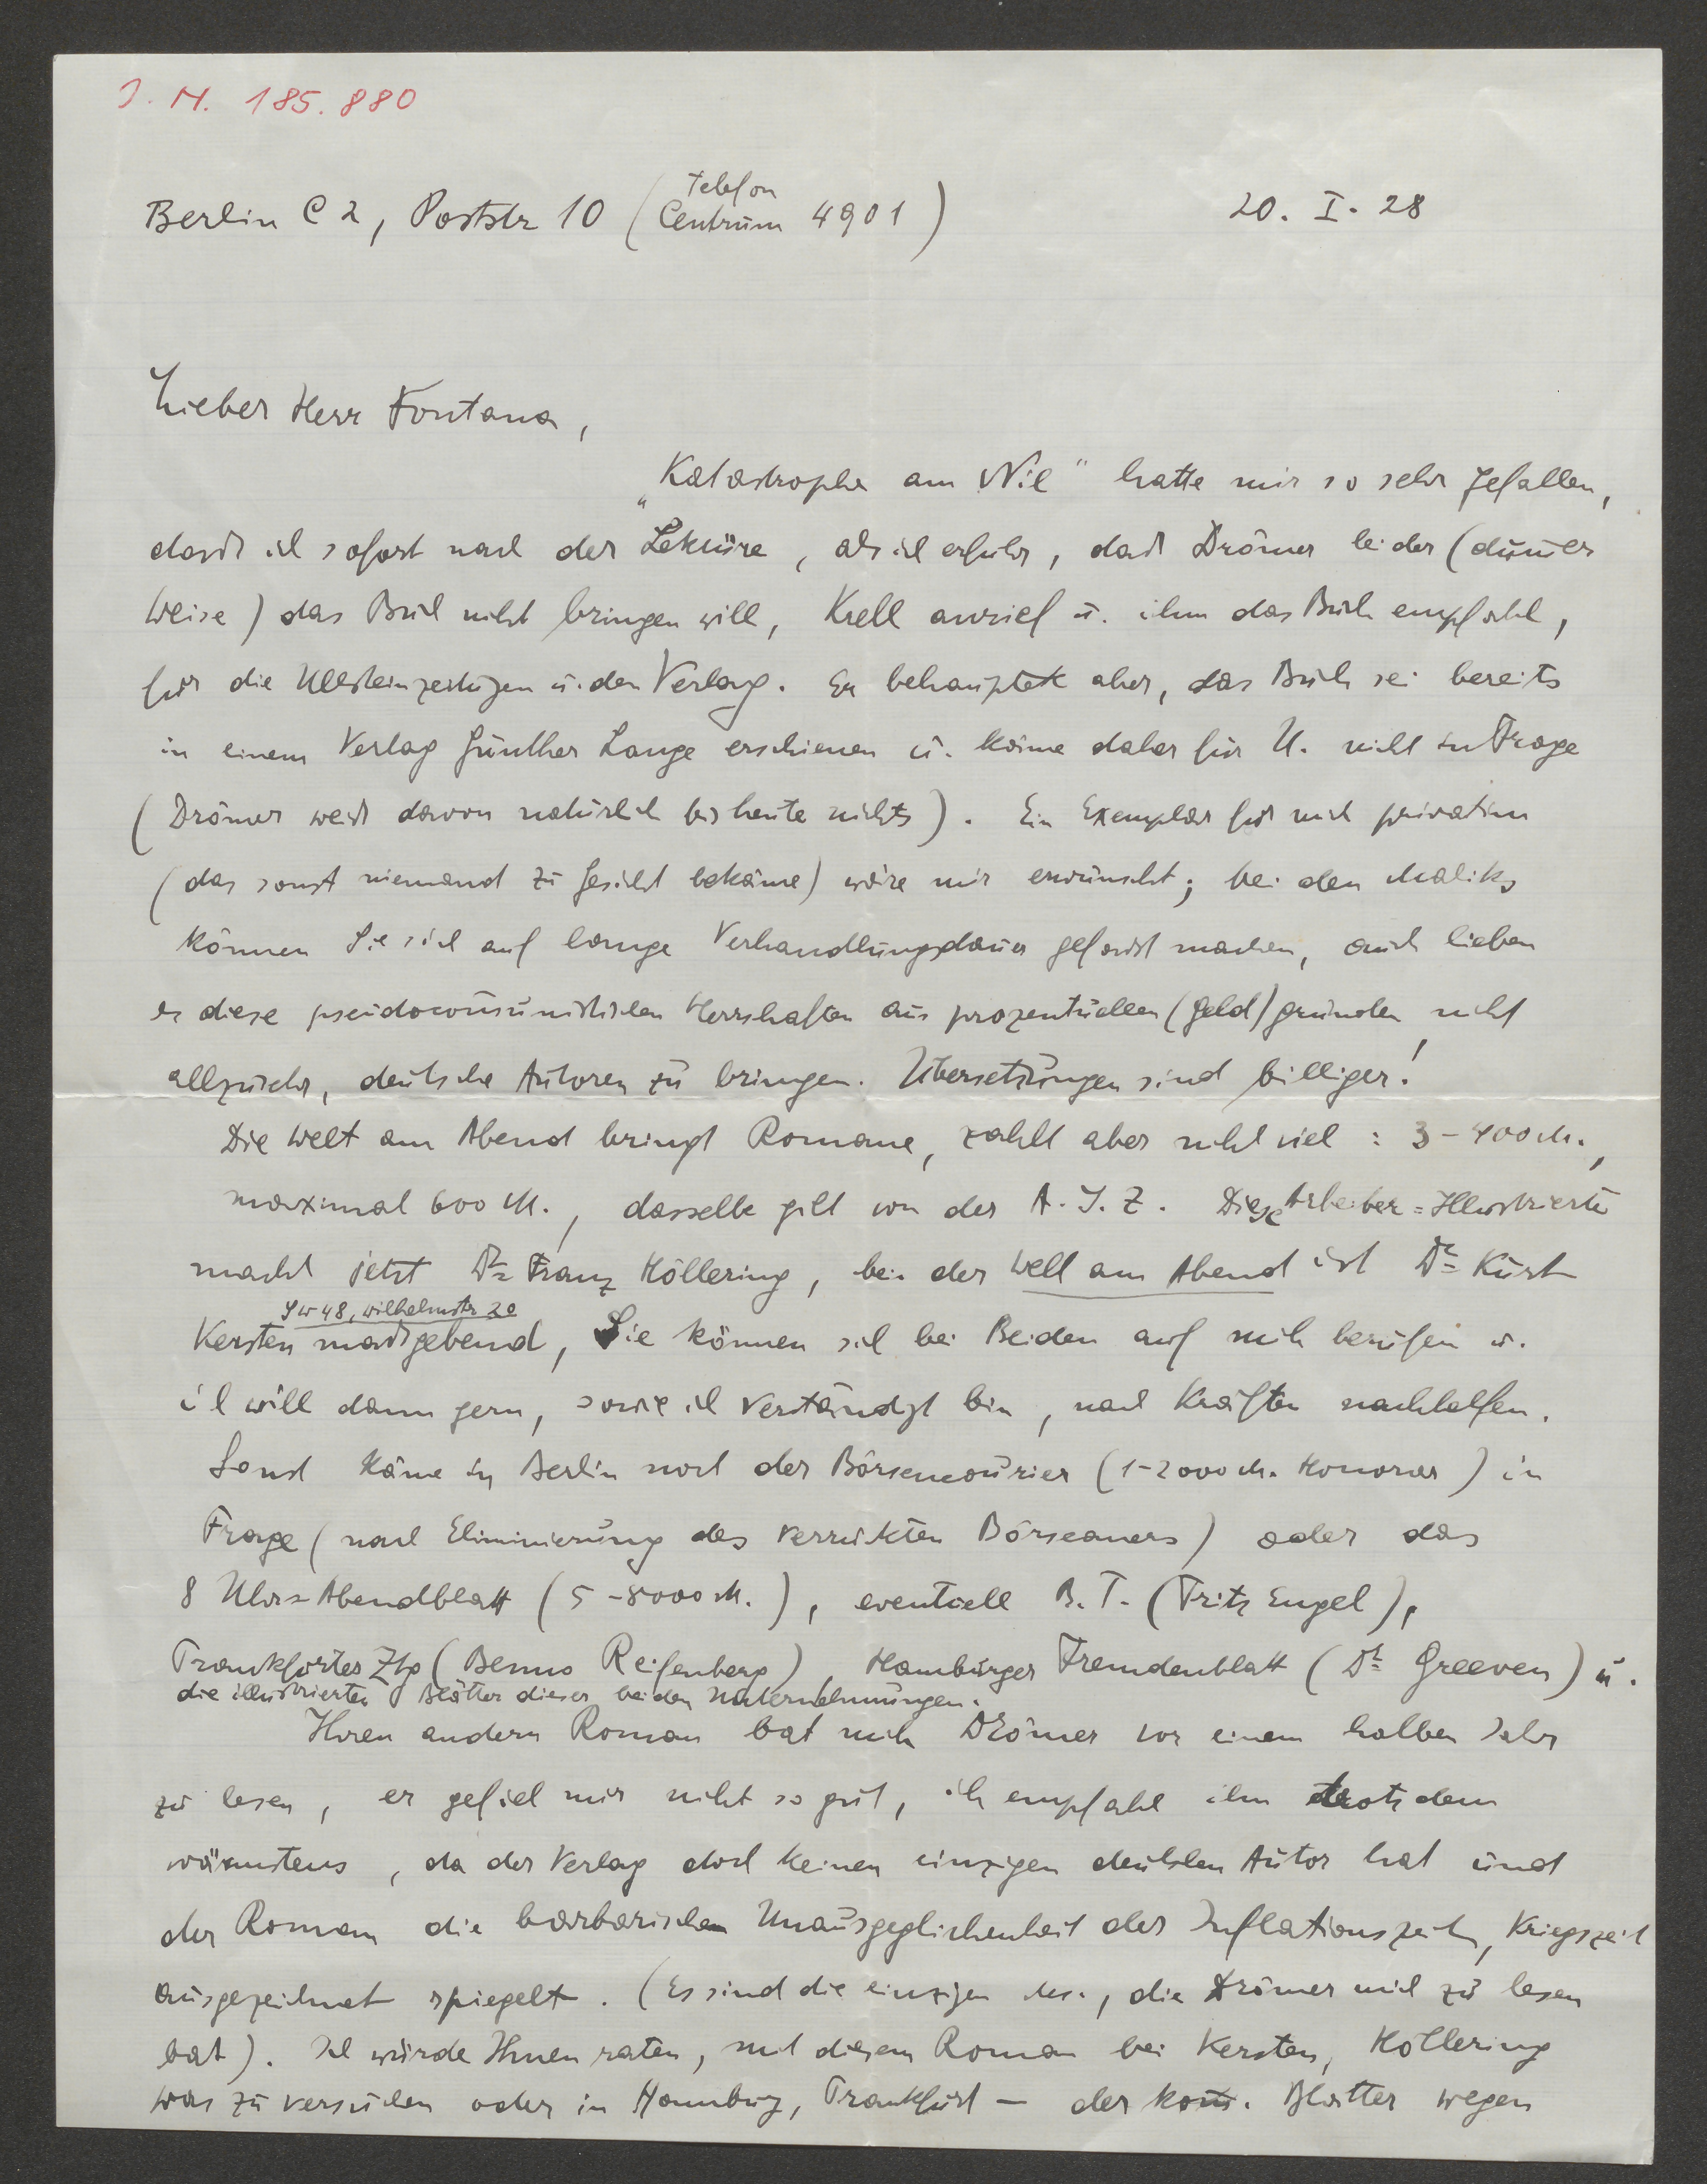 J. N. 185.880
Berlin C 2, Poststr 10 (Telefon Centrum 4901) 20. I. 28
Lieber Herr Fontana,
„Katastrophe am Nil" hatte mir so sehr gefallen,
dass ich sofort nach der Lektüre, als ich erfuhr, dass Drömer leider (dummer
Weise) das Buch nicht bringen will, Krell anrief u. ihm das Buch empfahl,
für die Ullsteinzeitungen u. den Verlag. Er behauptete aber, das Buch sei bereits
in einem Verlag Günther Lange erschienen u. käme daher für U. nicht in Frage
(Drömer weiss davon natürlich bis heute nichts). Ein Exemplar für mich privatim
(das sonst niemand zu Gesicht bekäme) wäre mir erwünscht; bei den Maliks
können Sie sich auf lange Verhandlungsdauer gefasst machen, auch lieben
es diese pseudocommunistischen Herrschaften aus prozentuellen (Geld)gründen nicht
allzusehr, deutsche Autoren zu bringen. Übersetzungen sind billiger!
Die Welt am Abend bringt Romane, zahlt aber nicht viel: 3-400 M.,
maximal 600 M., dasselbe gilt von der A. I. Z. Diese Arbeiter=Illustrierte
macht jetzt Dr. Franz Höllering, bei der Welt am Abend ist Dr. Kurt
SW 48, Wilhelmstr 20
Kersten massgebend, Sie können sich bei Beiden auf mich berufen u.
ich will dann gern, sowie ich verständigt bin, nach Kräften nachhelfen.
Sonst käme in Berlin noch der Börsencourier (1-2000 M. Honorar) in
Frage (nach Eliminierung des verrückten Börseaners) oder das
8 Uhr=Abendblatt (5-8000 M.), eventuell B. T. (Fritz Engel),
Frankfurter Ztg (Benno Reifenberg), Hamburger Fremdenblatt (Dr. Greeven) u.
die illustrierten Blätter dieser beiden Unternehmungen.
Ihren andern Roman bat mich Drömer vor einem halben Jahr
zu lesen, er gefiel mir nicht so gut, ich empfahl ihn trotzdem
wärmstens, da der Verlag doch keinen einzigen deutschen Autor hat und
der Roman die barbarische Unausgeglichenheit der Inflationszeit, Kriegszeit
ausgezeichnet spiegelt. (Es sind die einzigen Mss., die Drömer mich zu lesen
bat). Ich würde Ihnen raten, mit diesem Roman bei Kersten, Höllering
was zu versuchen oder in Hamburg, Frankfurt — der kom. Blätter wegen